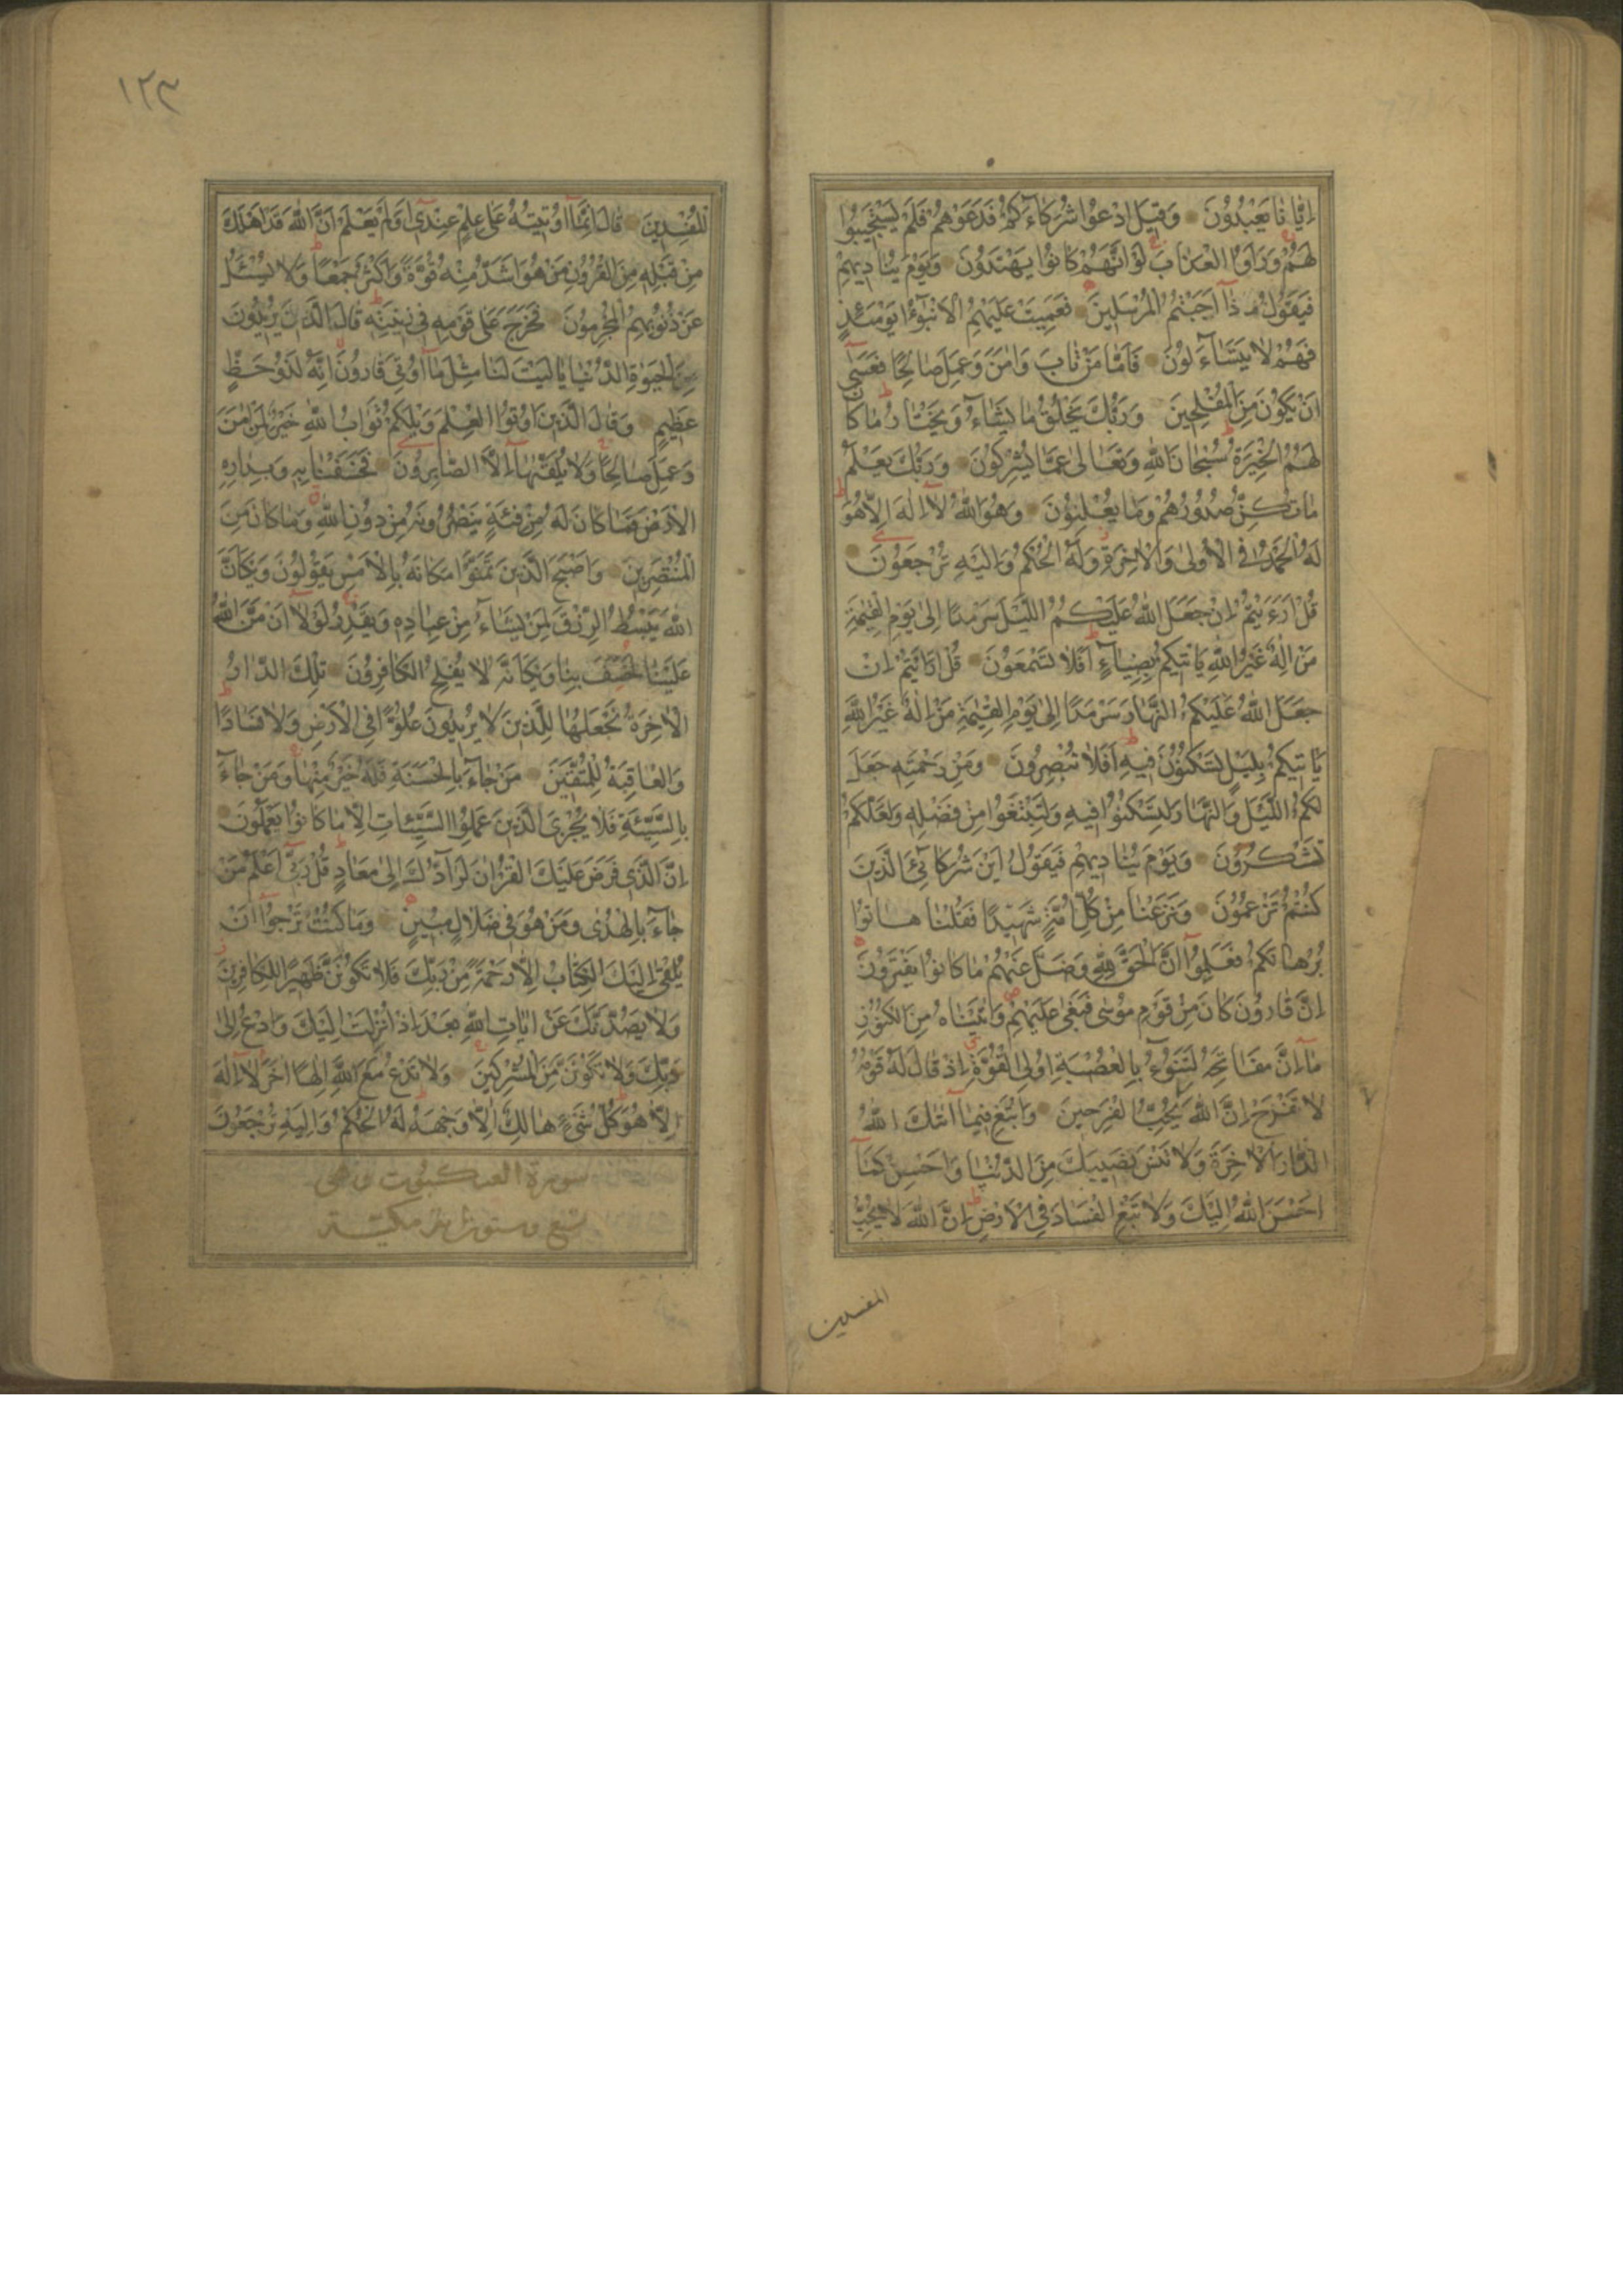 اِيّٰانٰا يَعْبُدُوُنَ وَقيٖلَ ادْعُوا شُرَكٰاۤءَكُمْ فَدَعَوْهُمْ فَلَمْ يَسْتَجيٖبُوا
لَهُمْ وَرَاَوُا الْعَذٰابَ لَوْ اَنَّهُمْ كٰانُوا يَهْتَدُوُنَ وَيَوْمَ يُنٰاديٖهِمْ
فَيَقُولُ مٰا ذٰۤا اَجَبْتُمُ الْمُرْسَليٖنَ فَعَمِيَتْ عَلَيْهِمُ الْاَنْبٰۤاءُ يَوْمَئِذٍ
فَهُمْ لٰا يَتَسٰاۤءَلُونَ فَاَمّٰا مَنْ تٰابَ وَاٰمَنَ وَعَمِلَ صٰالِحًا فَعَسٰۤى
اَنْ يَكُوُنَ مِنَ الْمُفْلِحيٖنَ وَرَبُّكَ يَخْلُقُ مٰا يَشٰاۤءُ وَيَخْتٰارُ مٰا كٰا
لَهُمُ الْخِيَرَةُ سُبْحٰانَ اللّٰهِ وَتَعٰالٰى عَمّٰا يُشْرِكُونَ وَرَبُّكَ يَعْلَمُ
مٰا تُكِنُّ صُدُوُرُهُمْ وَمٰا يُعْلِنُوُنَ وَهُوَ اللّٰهُ لٰۤا اِلٰهَ اِلّٰا هُوَ
لَهُ الْحَمْدُ فِي الْاُولٰى وَالْاٰخِرَةِ وَلَهُ الْحُكْمُ وَاِلَيْهِ تُرْجَعُوُنَ
قُلْ اَرَءَيْتُمْ اِنْ جَعَلَ اللّٰهُ عَلَيْكُمُ اللَّيْلَ سَرْمَدًا اِلٰى يَوْمِ الْقِيٰمَةِ
مَنْ اِلٰهٌ غَيْرُ اللّٰهِ يَاْتيٖكُمْ بِضِيٰاۤءٍ اَفَلٰا تَسْمَعُوُنَ قُلْ اَرَاَيْتُمْ اِنْ
جَعَلَ اللّٰهُ عَلَيْكُمُ النَّهٰارَ سَرْمَدًا اِلٰى يَوْمِ الْقِيٰمَةِ مَنْ اِلٰهٌ غَيْرُ اللّٰهِ
يَاْتيٖكُمْ بِلَيْلٍ تَسْكُنُوُنَ فيٖهِ اَفَلٰا تُبْصِرُونَ وَمِنْ رَحْمَتِهٖ جَعَلَ
لَكُمُ اللَّيْلَ وَالنَّهٰارَ لِتَسْكُنُوُا فيٖهِ وَلِتَبْتَغُوا مِنْ فَضْلِهٖ وَلَعَلَّكُمْ
تَشْكُرُوُنَ وَيَوْمَ يُنٰاديٖهِمْ فَيَقُوُلُ اَيْنَ شُرَكٰاۤئِيَ الَّذيٖنَ
كُنْتُمْ تَزْعُمُوُنَ وَنَزَعْنٰا مِنْ كُلِّ اُمَّةٍ شَهيٖدًا فَقُلْنٰا هٰاتُوا
بُرْهٰانَكُمْ فَعَلِمُوۤا اَنَّ الْحَقَّ لِلّٰهِ وَضَلَّ عَنْهُمْ مٰا كٰانُوا يَفْتَرُونَ
اِنَّ قٰارُوُنَ كٰانَ مِنْ قَوْمِ مُوسٰى فَبَغٰى عَلَيْهِمْ وَاٰتَيْنٰاهُ مِنَ الْكُنُوُزِ
مٰاۤ اِنَّ مَفٰاتِحَهُ لَتَنُوۤءُ بِالْعُصْبَةِ اُولِى الْقُوَّةِ اِذْ قٰالَ لَهُ قَوْمُهُ
لٰا تَفْرَحْ اِنَّ اللّٰهَ لٰا يُحِبُّ الْفَرِحيٖنَ وَابْتَغِ فيٖمٰاۤ اٰتٰيكَ اللّٰهُ
الدّٰارَ الْاٰخِرَةَ وَلٰا تَنْسَ نَصيٖبَكَ مِنَ الدُّنْيٰا وَاَحْسِنْ كَمٰاۤ
اَحْسَنَ اللّٰهُ اِلَيْكَ وَلٰا تَبْغِ الْفَسٰادَ فِي الْاَرْضِ اِنَّ اللّٰهَ لٰا يُحِبُّ
المفسدين
١٢٣
الْمُفْسِديٖنَ قٰالَ اِنَّمٰاۤ اُوُتيٖتُهُ عَلٰى عِلْمٍ عِنْديٖۤ اَوَلَمْ يَعْلَمْ اَنَّ اللّٰهَ قَدْ اَهْلَكَ
مِنْ قَبْلِهٖ مِنَ الْقُرُوُنِ مَنْ هُوَ اَشَدُّ مِنْهُ قُوَّةً وَاَكْثَرُ جَمْعًا وَلٰا يُسْئَلُ
عَنْ ذُنُوُبِهِمُ الْمُجْرِمُوُنَ فَخَرَجَ عَلٰى قَوْمِهٖ فيٖ زيٖنَتِهٖ قٰالَ الَّذيٖنَ يُريٖدُوُنَ
الْحَيٰوةَ الدُّنْيٰا يٰا لَيْتَ لَنٰا مِثْلَ مٰاۤ اُوُتِيَ قٰارُوُنُ اِنَّهُ لَذُوُ حَظٍّ
عَظيٖمٍ وَقٰالَ الَّذيٖنَ اُوتُوا الْعِلْمَ وَيْلَكُمْ ثَوٰابُ اللّٰهِ خَيْرٌ لِمَنْ اٰمَنَ
وَعَمِلَ صٰالِحًا وَلٰا يُلَقّٰيهٰاۤ اِلَّا الصّٰابِرُوُنَ فَخَسَفْنٰا بِهٖ وَبِدٰارِهِ
الْاَرْضَ فَمٰا كٰانَ لَهُ مِنْ فِئَةٍ يَنْصُرُونَهُ مِنْ دُوُنِ اللّٰهِ وَمٰا كٰانَ مِنَ
الْمُنْتَصِريٖنَ وَاَصْبَحَ الَّذيٖنَ تَمَنَّوْا مَكٰانَهُ بِالْاَمْسِ يَقُوُلُوُنَ وَيْكَاَنَّ
اللّٰهَ يَبْسُطُ الرِّزْقَ لِمَنْ يَشٰاۤءُ مِنْ عِبٰادِهٖ وَيَقْدِرُ لَوْلٰاۤ اَنْ مَنَّ اللّٰهُ
عَلَيْنٰا لَخَسَفَ بِنٰا وَيْكَاَنَّهُ لٰا يُفْلِحُ الْكٰافِرُوُنَ تِلْكَ الدّٰارُ
الْاٰخِرَةُ نَجْعَلُهٰا لِلَّذيٖنَ لٰا يُريٖدُوُنَ عُلُوًّا فِي الْاَرْضِ وَلٰا فَسٰادًا
وَالْعٰاقِبَةُ لِلْمُتَّقيٖنَ مَنْ جٰاۤءَ بِالْحَسَنَةِ فَلَهُ خَيْرٌ مِنْهٰا وَمَنْ جٰاۤءَ
بِالسَّيِّئَةِ فَلٰا يُجْزَى الَّذيٖنَ عَمِلُوا السَّيِّئٰاتِ اِلّٰا مٰا كٰانُوا يَعْمَلُوُنَ
اِنَّ الَّذيٖ فَرَضَ عَلَيْكَ الْقُرْاٰنَ لَرٰاۤدُّكَ اِلٰى مَعٰادٍ قُلْ رَبّيٖۤ اَعْلَمُ مَنْ
جٰاۤءَ بِالْهُدٰى وَمَنْ هُوَ فيٖ ضَلٰالٍ مُبيٖنٍ وَمٰا كُنْتَ تَرْجُوۤا اَنْ
يُلْقٰىۤ اِلَيْكَ الْكِتٰابُ اِلّٰا رَحْمَةً مِنْ رَبِّكَ فَلٰا تَكُوُنَنَّ ظَهيٖرًا لِلْكٰافِريٖنَ
وَلٰا يَصُدُّنَّكَ عَنْ اٰيٰاتِ اللّٰهِ بَعْدَ اِذْ اُنْزِلَتْ اِلَيْكَ وَادْعُ اِلٰى
رَبِّكَ وَلٰا تَكُوُنَنَّ مِنَ الْمُشْرِكيٖنَ وَلٰا تَدْعُ مَعَ اللّٰهِ اِلٰهًا اٰخَرَ لٰاۤ اِلٰهَ
اِلّٰا هُوَ كُلُّ شَيْءٍ هٰالِكٌ اِلّٰا وَجْهَهُ لَهُ الْحُكْمُ وَاِلَيْهِ تُرْجَعُوُنَ
سورة العنكبوت وهى
تسع وستون اية مكية